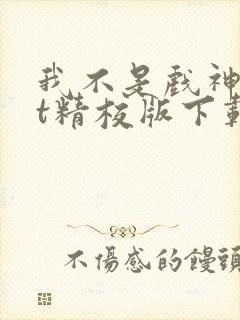 我不是戲神
t精校版下載
不傷感的饅頭